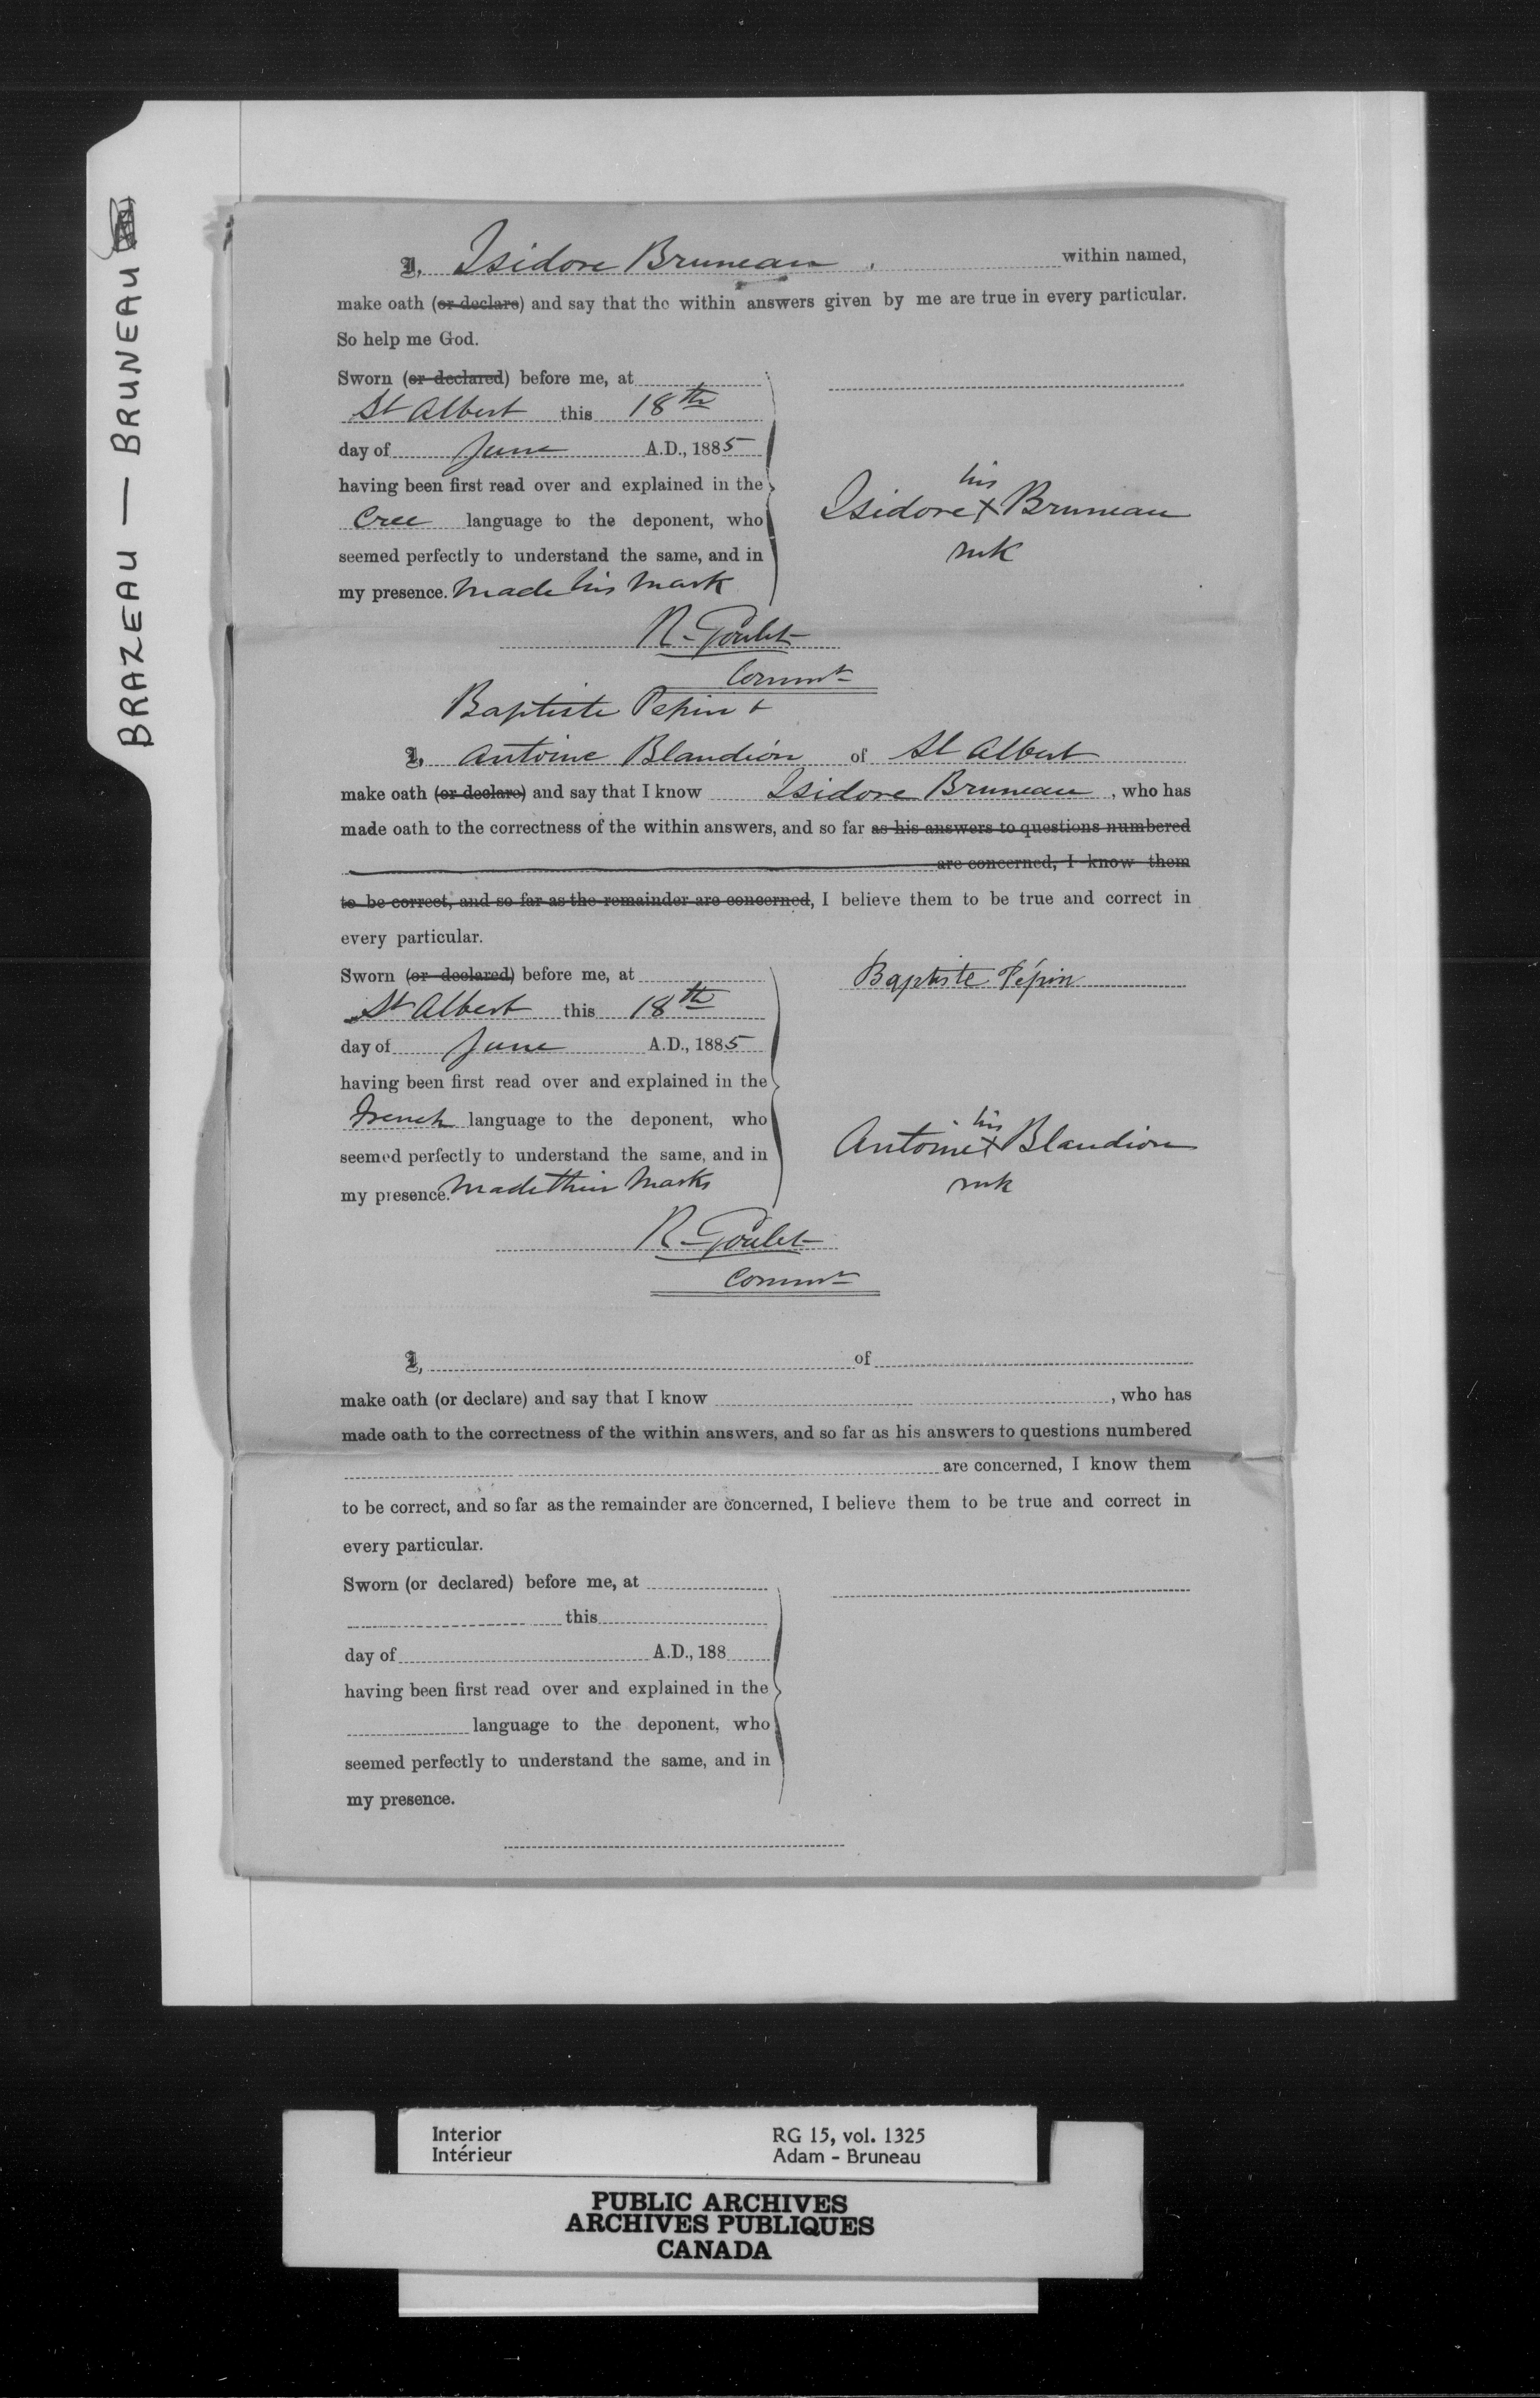 BRAZEAU — BRUNEAU
I, Isidore Bruneau, within named,
make oath (or declare) and say that the within answers given by me are true in every particular.
So help me God.
Sworn (or declared) before me, at
St Albert this 18th
day of June A.D., 1885
having been first read over and explained in the
Cree language to the deponent, who
seemed perfectly to understand the same, and in
my presence. made his mark
his
Isidore X Bruneau
mk
R. Goulet
Commr
Baptiste Pepin &
I, Antoine Blandion of St Albert
make oath (or declare) and say that I know Isidore Bruneau, who has
made oath to the correctness of the within answers, and so far as his answers to questions numbered
are concerned, I know them
to be correct, and so far as the remainder are concerned, I believe them to be true and correct in
every particular.
Sworn (or declared) before me, at
St Albert this 18th
day of June A.D., 1885
having been first read over and explained in the
French language to the deponent, who
seemed perfectly to understand the same, and in
my presence. made their marks
Baptiste Pépin
his
Antoine X Blandion
mk
R. Goulet
Commr
I, of
make oath (or declare) and say that I know , who has
made oath to the correctness of the within answers, and so far as his answers to questions numbered
are concerned, I know them
to be correct, and so far as the remainder are concerned, I believe them to be true and correct in
every particular.
Sworn (or declared) before me, at
this
day of A.D., 188
having been first read over and explained in the
language to the deponent, who
seemed perfectly to understand the same, and in
my presence.
Interior RG 15, vol. 1325
Intérieur Adam - Bruneau
PUBLIC ARCHIVES
ARCHIVES PUBLIQUES
CANADA